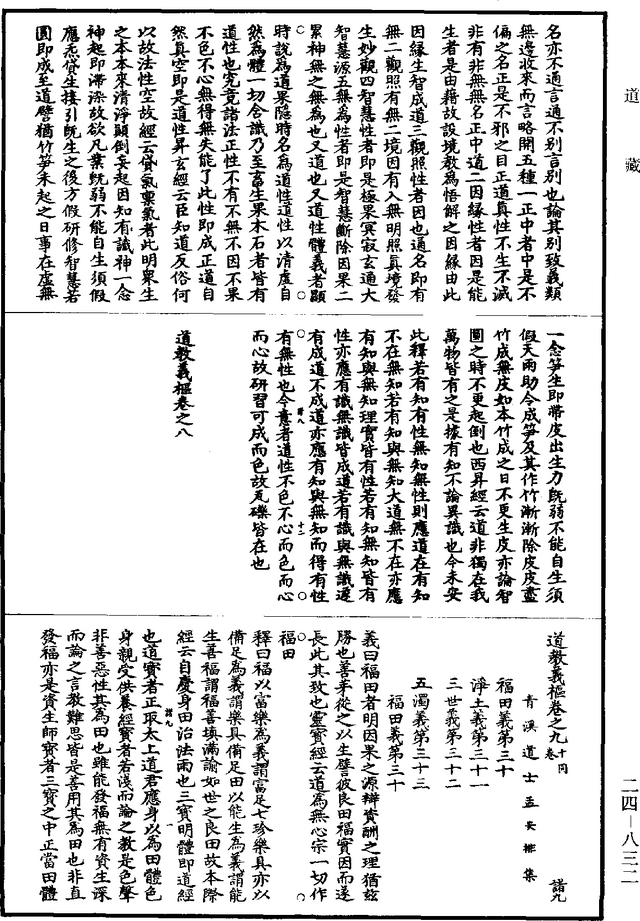 道藏
名亦不通言通不別言別也論其別致義類
無邊收來而言略開五種一正中者中是不
偏之名正是不邪之目正道真性不生不滅
非有非無無名正中道二因緣性者因是能
生者是由藉故設境教為悟解之因緣由此
因緣生智成道三觀照性者因也通名即有
無二觀照有無二境因有入無明照真境發
生妙觀四智慧性者即是極果冥寂玄通大
智慧源五無為性者即是智慧斷除因果二
累神無之無為也又道也又道性體義者顯
時說為道果隱時名為道性道性以清虛自
然為體一切含識乃至畜生果木石者皆有
道性也究竟諸法正性不有不無不因不果
不色不心無得無失能了此性即成正道自
然真空即是道性昇玄經云臣知道反俗何
以故法性空故經云貸氣稟氣者此明眾生
之本本來清淨顛倒妄起因知有識神一念
神起即滯染故欲凡業既弱不能自生須假
應炁貸生接引既生之後方假研修智慧若
圓即成至道譬猶竹笋未起之日事在虛無
一念笋生即帶皮出生力既弱不能自生須
假天雨助令成笋及其作竹漸漸除皮皮盡
竹成無皮如本竹成之日不更生皮亦論智
圓之時不更起倒也西昇經云道非獨在我
萬物皆有之是據有知不論異識也今未安
此釋若有知有性無知無性則應道在有知
不在無知若有知與無知大道無不在亦應
有知與無知理實皆有性若有知無知皆有
性亦應有識無識皆成道若有識與無識遷
有成道不成道亦應有知與無知而得有性
有無性也今意者道性不色不心而色而心
而心故研習可成而色故瓦礫皆在也
道教義樞卷之八
道教義樞卷之九 十同卷 諾九
青溪道士孟安排集
福田義第三十
淨土義第三十一
三世義第三十二
五濁義第三十三
福田義第三十
義曰福田者明因果之源辯資酬之理猶茲
勝也善芽從之以生譬彼良田福實因而遂
長此其致也靈寶經云道為無心宗一切作
福田
釋曰福以富樂為義謂富足七珍樂具亦以
備足為義謂樂具備足田以能生為義謂能
生善福謂福善填滿諭如世之良田故本際
經云自慶身田治法雨也三寶明體即道經
也道寶者正取太上道君應身以為田體色
身親受供養經寶者若淺而論之教是色聲
非善惡性其為田也雖能發福無有資生深
而論之言教難思皆是善用其為田也非直
發福亦是資生師寶者三寶之中正當田體
二四—八三二